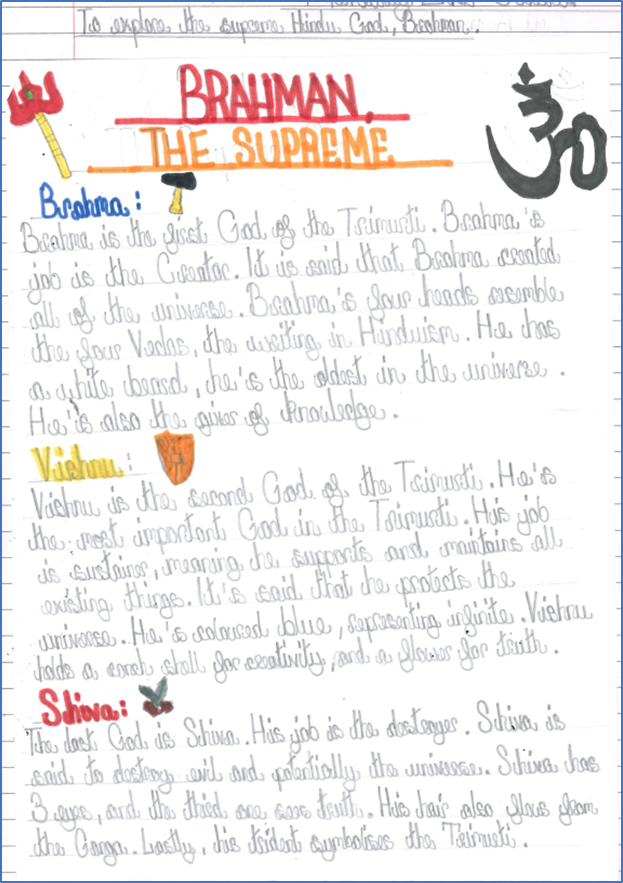 To explore the supreme Hindu God, Brahman.
BRAHMAN,
THE SUPREME
Brahma:
Brahma is the first God of the Trimurti. Brahma's
job is the Creator. It is said that Brahma created
all of the universe. Brahma's four heads resemble
the four Vedas, the writing in Hinduism. He has
a white beard, he's the oldest in the universe.
He's also the giver of knowledge.
Vishnu:
Vishnu is the second God of the Trimurti. He's
the most important God in the Trimurti. His job
is sustainer, meaning he supports and maintains all
existing things. It's said that he protects the
universe. He's coloured blue, representing infinite. Vishnu
holds a conch shell for creativity, and a flower for truth.
Shiva:
The last God is Shiva. His job is the destroyer. Shiva is
said to destroy evil and potentially the universe. Shiva has
3 eyes, and the third one sees truth. His hair also flows from
the Ganga. Lastly, his trident symbolises the Trimurti.
ॐ